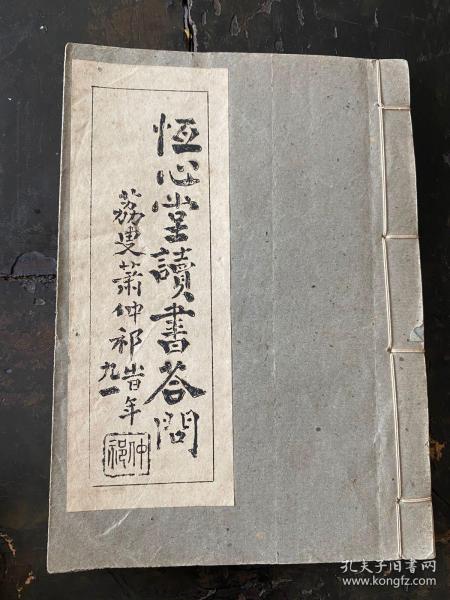 恆心堂讀書荅問
荔叟蕭仲祁旹年九一
仲祁
孔夫子旧书网
www.kongfz.com